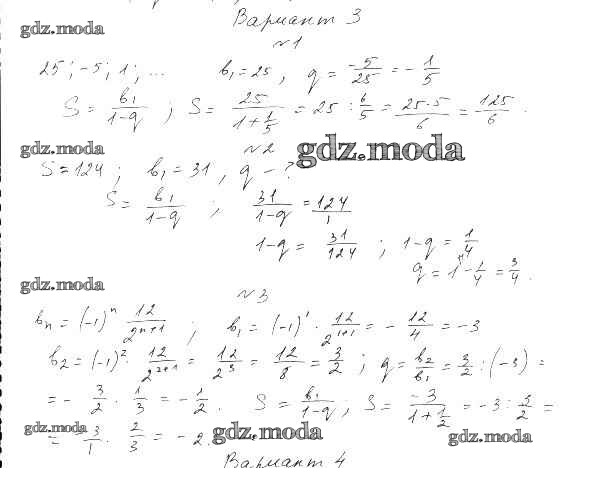 Вариант 3
gdz.moda
№1
25; -5; 1; ... b₁ = 25, q = -5/25 = -1/5
S = b₁/(1-q); S = 25/(1+1/5) = 25 : 6/5 = 25·5/6 = 125/6.
gdz.moda №2 gdz.moda
S = 124; b₁ = 31, q - ?
S = b₁/(1-q); 31/(1-q) = 124/1
1-q = 31/124; 1-q = 1/4
q = 1 - 1/4 = 3/4.
gdz.moda
№3
bₙ = (-1)ⁿ 12/2ⁿ⁺¹; b₁ = (-1)¹ · 12/2¹⁺¹ = - 12/4 = -3
b₂ = (-1)² · 12/2²⁺¹ = 12/2³ = 12/8 = 3/2; q = b₂/b₁ = 3/2 : (-3) =
= - 3/2 · 1/3 = - 1/2. S = b₁/(1-q); S = -3/(1+1/2) = -3 : 3/2 =
= - 3/1 · 2/3 = -2.
gdz.moda gdz.moda gdz.moda
Вариант 4